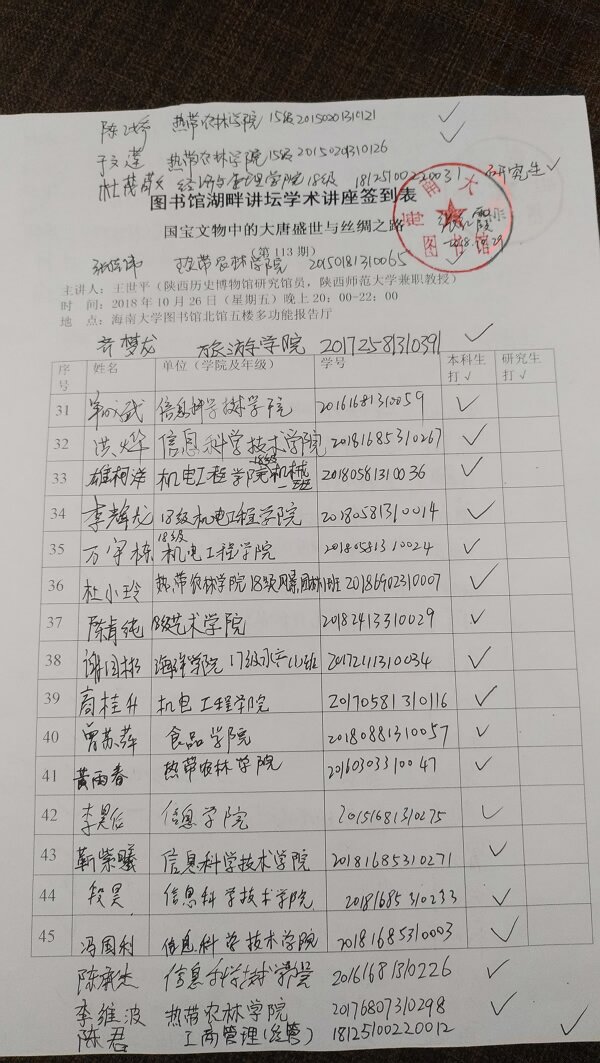 热带农林学院 15级 20150201310121 ✓
热带农林学院 15级 20150203310126 ✓
经济与管理学院 18级 18125100220031 研究生 ✓
图书馆湖畔讲坛学术讲座签到表
国宝文物中的大唐盛世与丝绸之路
(第 113 期)
热带农林学院 20150181310065 ✓
主讲人:王世平(陕西历史博物馆研究馆员,陕西师范大学兼职教授)
时 间:2018 年 10 月 26 日(星期五)晚上 20:00-22:00
地 点:海南大学图书馆北馆五楼多功能报告厅
梦龙 旅游学院 20172581310391 ✓
序号 姓名 单位(学院及年级) 学号 本科生打√ 研究生打√
31 信息科学技术学院 20161681310059 ✓
32 洪烨 信息科学技术学院 20181685310267 ✓
33 雄柯洋 机电工程学院 18级机械一班 20180581310036 ✓
34 李辉龙 18级机电工程学院 20180581310014 ✓
35 万宇栋 18级机电工程学院 20180581310024 ✓
36 杜小玲 热带农林学院18级风景园林1班 20186902310007 ✓
37 陈肖纯 18级艺术学院 20182413310029 ✓
38 谢国彬 海洋学院 17级水产(1)班 20172111310034 ✓
39 高桂升 机电工程学院 20170581310116 ✓
40 曾苏萍 食品学院 20180881310057 ✓
41 黄雨春 热带农林学院 20160303310047 ✓
42 李昊 信息学院 20151681310275 ✓
43 靳紫曦 信息科学技术学院 20181685310271 ✓
44 段昊 信息科学技术学院 20181685310233 ✓
45 冯国利 信息科学技术学院 20181685310003 ✓
陈 信息科学技术学院 20161681310226 ✓
李维波 热带农林学院 20176807310298 ✓
陈君 工商管理(经管) 18125100220012 ✓